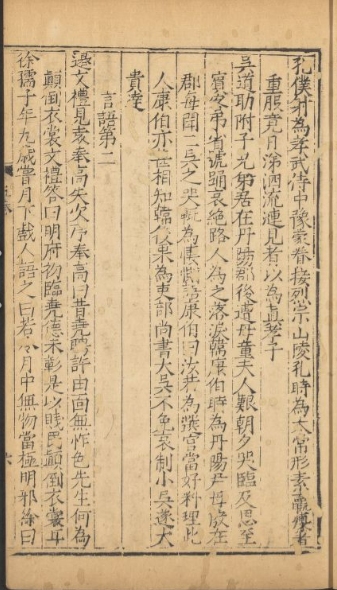 孔僕射為孝武侍中豫蒙眷接烈宗山陵孔時為太常形素羸瘦著
重服竟日涕泗流連見者以為真孝子
吳道助附子兄弟居在丹陽郡後遭母童夫人艱朝夕哭臨及思至
賓客弔省號踊哀絕路人為之落淚韓康伯時為丹陽尹母殷在
郡每聞二吳之哭輒為悽惻語康伯曰汝若為選官當好料理此
人康伯亦甚相知韓後果為吏部尚書大吳不免哀制小吳遂大
貴達
言語第二
邊文禮見袁奉高失次序奉高曰昔堯聘許由面無怍色先生何為
顛倒衣裳文禮答曰明府初臨堯德未彰是以賤民顛倒衣裳耳
徐孺子年九歲嘗月下戲人語之曰若令月中無物當極明邪徐曰